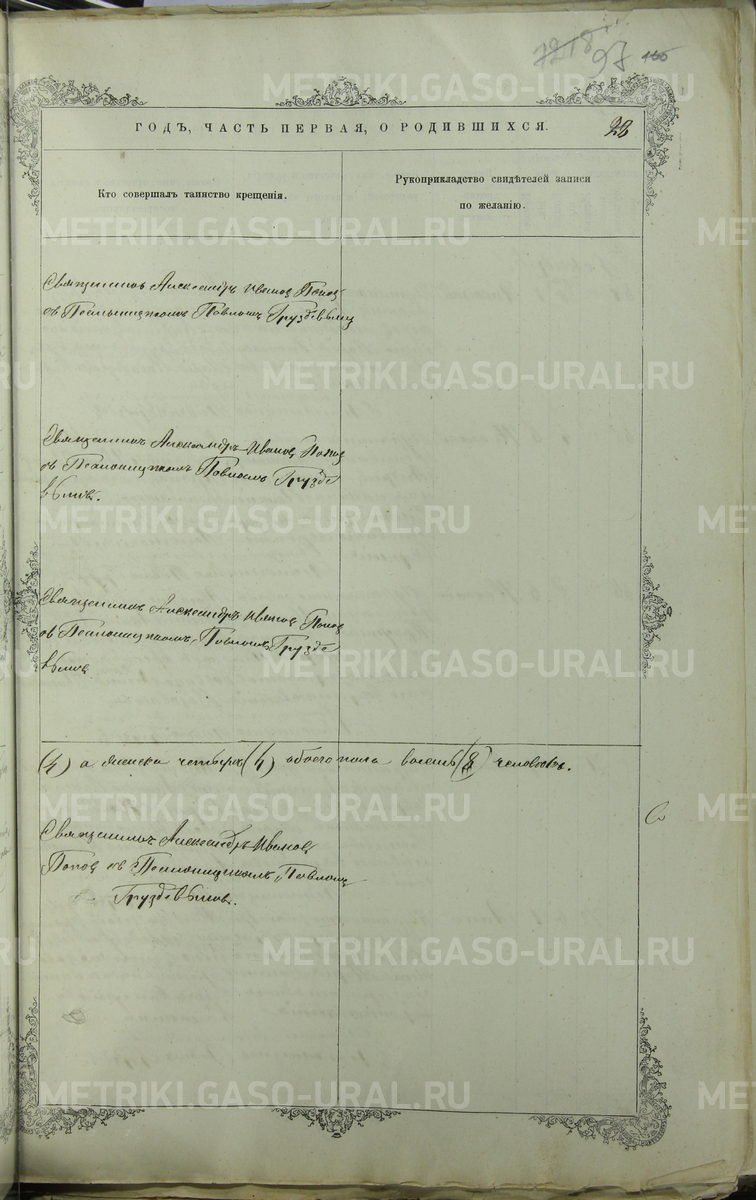 7218
97
166
ГОДЪ, ЧАСТЬ ПЕРВАЯ, О РОДИВШИХСЯ.
28
Кто совершалъ таинство крещенія.
Рукоприкладство свидѣтелей записи
по желанію.
Священникъ Александръ Ивановъ Попов
съ Псаломщикомъ Павломъ Груздевымъ
Священникъ Александръ Ивановъ Попов
съ Псаломщикомъ Павломъ Грузде
вымъ.
Священникъ Александръ Ивановъ Попов
съ Псаломщикомъ Павломъ Грузде
вымъ
(4) а женска четыре (4) обоего пола восемь (8) человѣкъ.
Священникъ Александръ Ивановъ
Попов съ Псаломщикомъ Павломъ
Груздевымъ.
METRIKI.GASO-URAL.RU